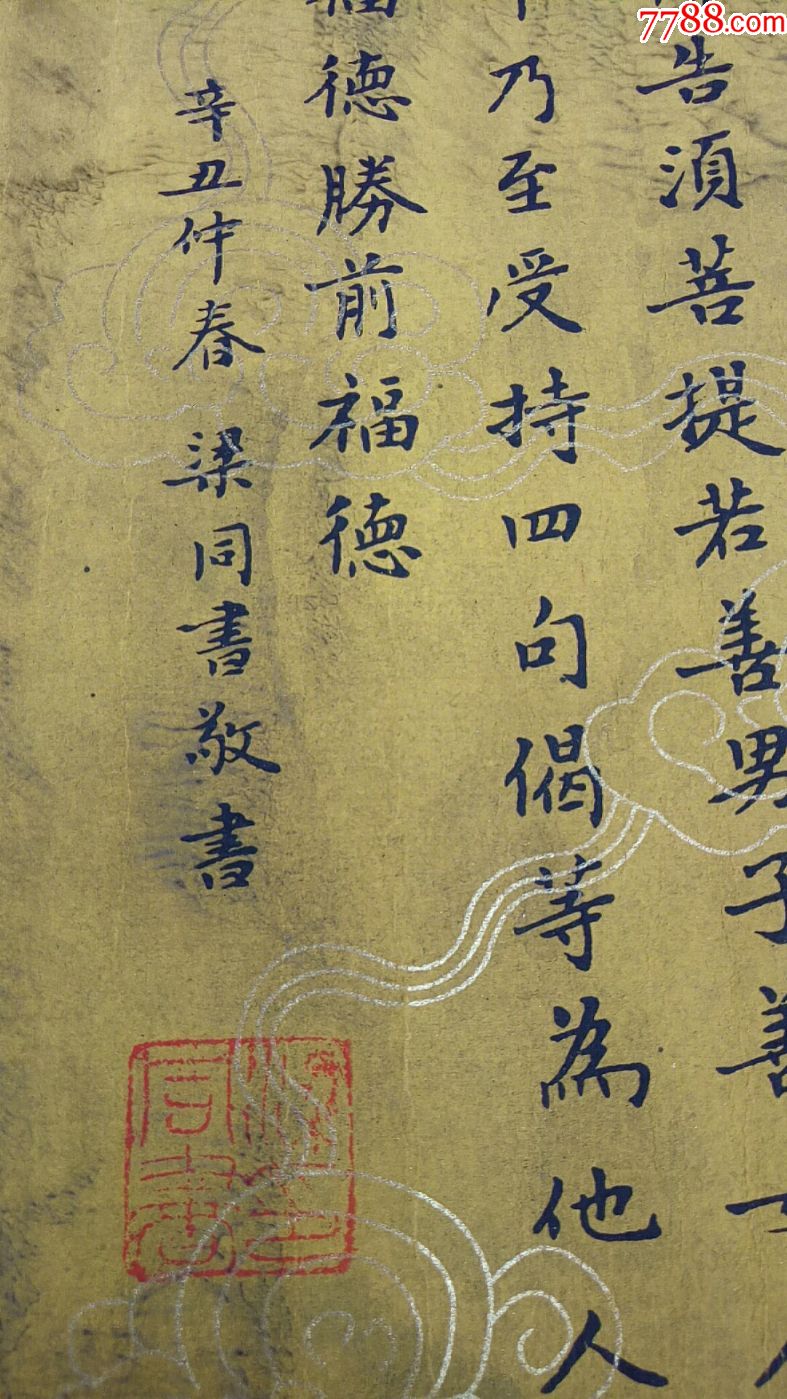 7788.com
告須菩提若善男子善
乃至受持四句偈等為他人
福德勝前福德
辛丑仲春 梁同書敬書
同書